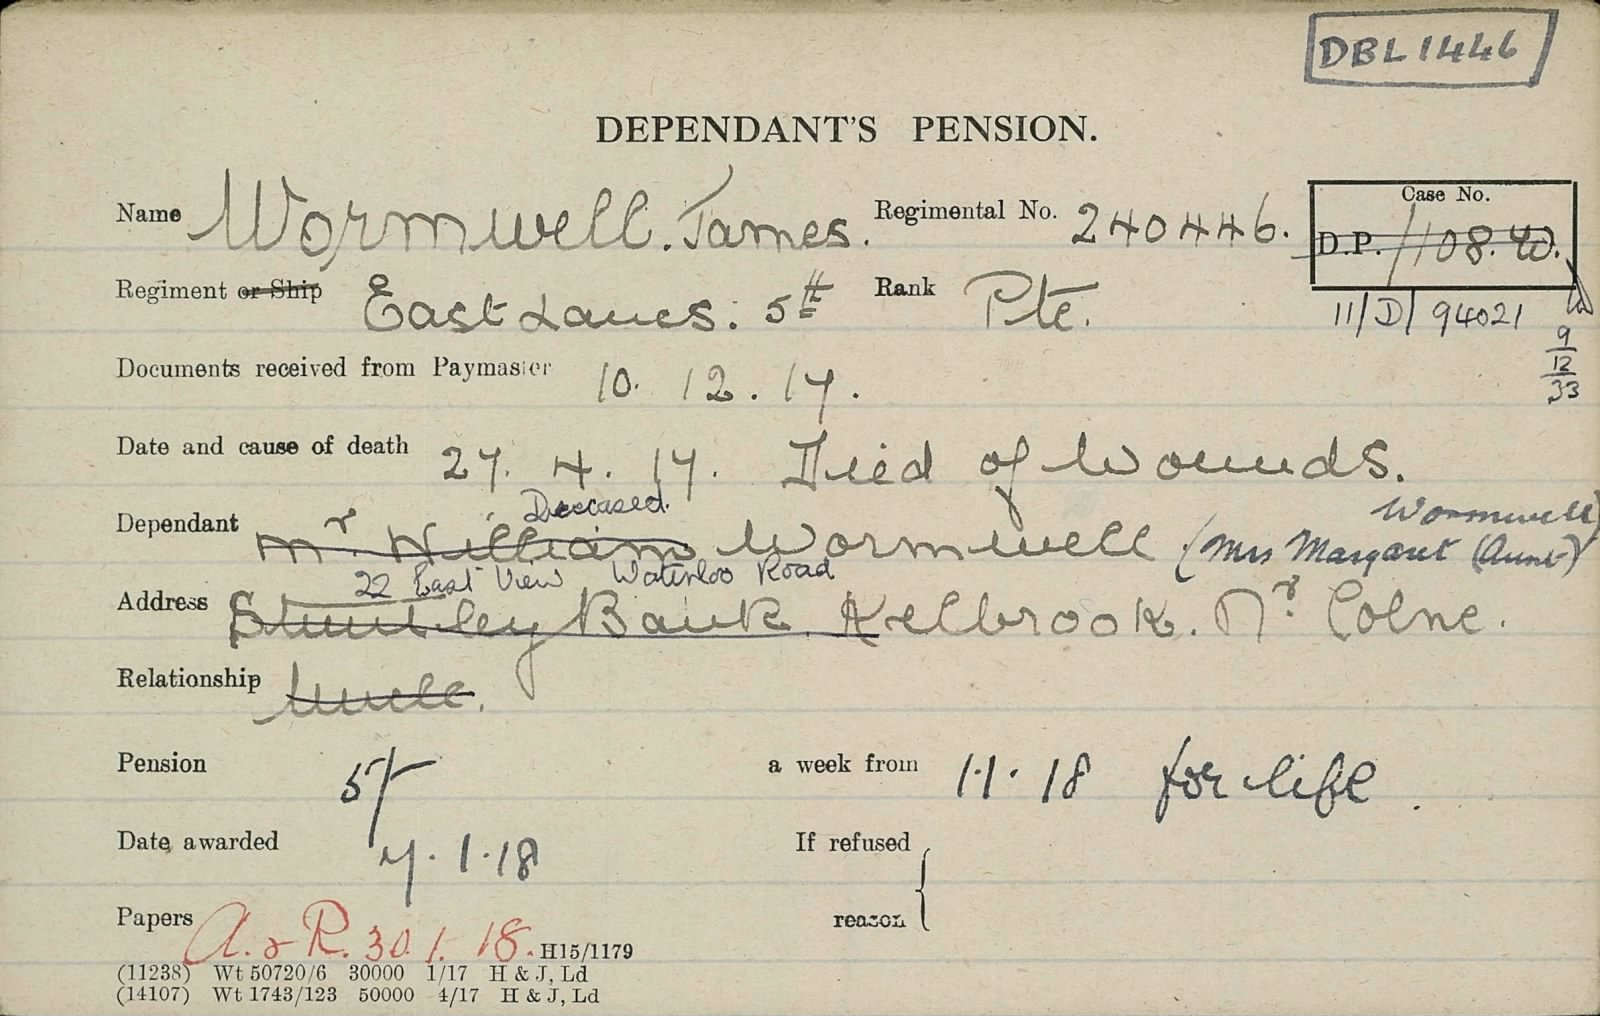 DBL 1446
DEPENDANT'S PENSION.
Name Wormwell. James. Regimental No. 240446. Case No.
D.P. 1108. W.
Regiment or Ship East Lancs. 5th Rank Pte. 11/D/94021
9/12/33
Documents received from Paymaster 10. 12. 17.
Date and cause of death 27. 4. 17. Died of Wounds.
Deceased. Wormwell
Dependant Mr. William Wormwell (Mrs Margaret (Aunt)
22 East View Waterloo Road
Address Bank, Kelbrook. Nr. Colne.
Relationship Uncle.
Pension 5/- a week from 1.1.18 for life.
Date awarded 7.1.18 If refused
reason
Papers A. & R. 30. 1. 18. H15/1179
(11238) Wt 50720/6 30000 1/17 H & J, Ld
(14107) Wt 1743/123 50000 4/17 H & J, Ld